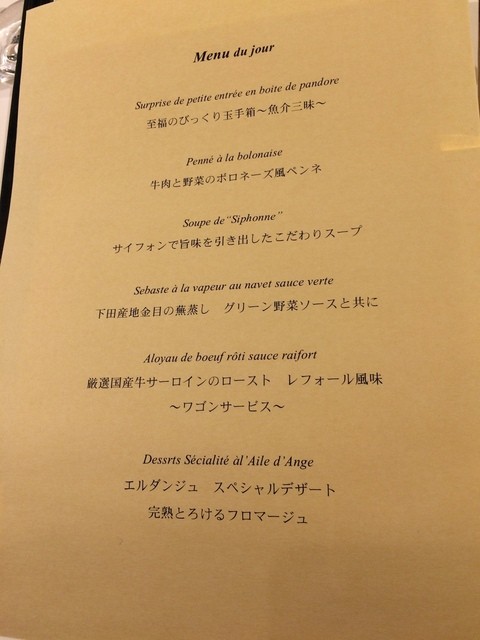 Menu du jour
Surprise de petite entrée en boite de pandore
至福のびっくり玉手箱～魚介三昧～
Penné à la bolonaise
牛肉と野菜のボロネーズ風ペンネ
Soupe de“Siphonne”
サイフォンで旨味を引き出したこだわりスープ
Sebaste à la vapeur au navet sauce verte
下田産地金目の蕪蒸し　グリーン野菜ソースと共に
Aloyau de boeuf rôti sauce raifort
厳選国産牛サーロインのロースト　レフォール風味
～ワゴンサービス～
Dessrts Sécialité àl’Aile d’Ange
エルダンジュ　スペシャルデザート
完熟とろけるフロマージュ